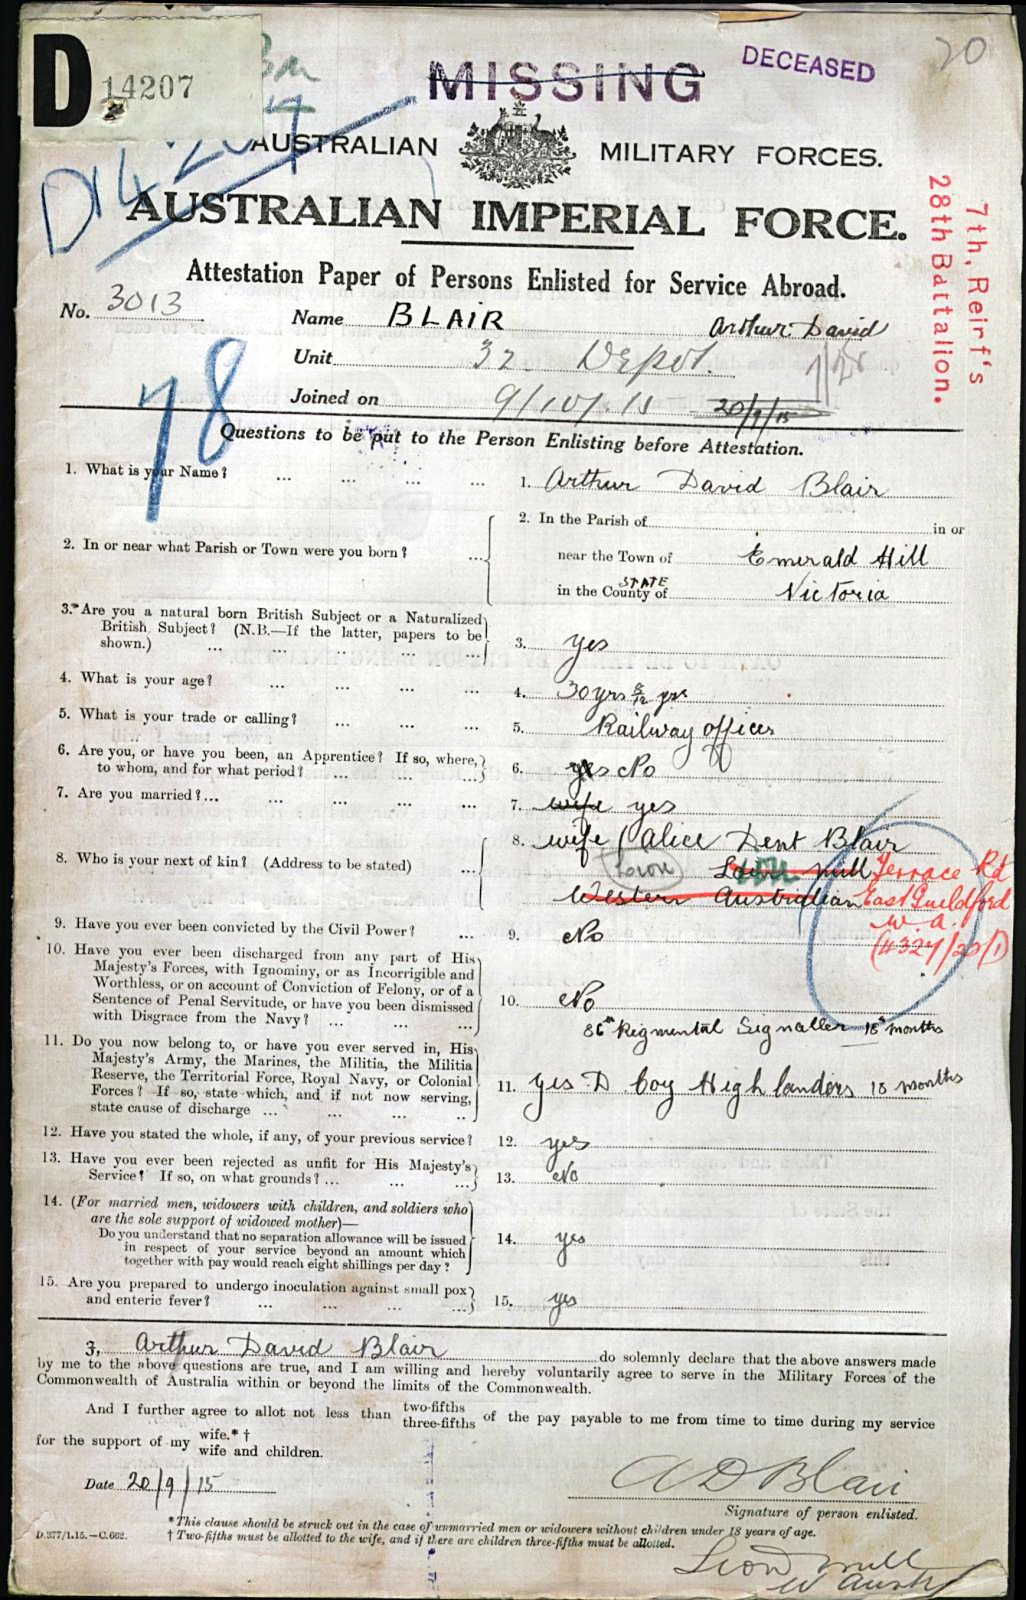 D 14207
Bn
MISSING
DECEASED
20
D14207
AUSTRALIAN MILITARY FORCES.
AUSTRALIAN IMPERIAL FORCE.
7th, Reirf's
28th Battalion.
Attestation Paper of Persons Enlisted for Service Abroad.
No. 3013
Name BLAIR Arthur David
Unit 32 Depot. 7/28
Joined on 9/10/15 20/9/15
78
Questions to be put to the Person Enlisting before Attestation.
1. What is your Name? ... ... ... ... 1. Arthur David Blair
2. In or near what Parish or Town were you born? ... 2. In the Parish of in or
near the Town of Emerald Hill
STATE
in the County of Victoria
3.* Are you a natural born British Subject or a Naturalized
British Subject? (N.B.—If the latter, papers to be
shown.) ... ... ... ... ... 3. yes
4. What is your age? ... ... ... ... 4. 30 yrs 8/12 yrs
5. What is your trade or calling? ... ... ... 5. Railway officer
6. Are you, or have you been, an Apprentice? If so, where,
to whom, and for what period? ... ... ... 6. yes No
7. Are you married? ... ... ... ... ... 7. wife yes
8. Who is your next of kin? (Address to be stated) ... 8. wife (Alice Dent Blair
Lion Mill Terrace Rd
Western Australian East Guildford
W.A.
(#327/20/1)
9. Have you ever been convicted by the Civil Power? ... 9. No
10. Have you ever been discharged from any part of His
Majesty's Forces, with Ignominy, or as Incorrigible and
Worthless, or on account of Conviction of Felony, or of a
Sentence of Penal Servitude, or have you been dismissed
with Disgrace from the Navy? ... ... ... 10. No
86th Regmental Signaller 18 months
11. Do you now belong to, or have you ever served in, His
Majesty's Army, the Marines, the Militia, the Militia
Reserve, the Territorial Force, Royal Navy, or Colonial
Forces? If so, state which, and if not now serving,
state cause of discharge ... ... ... ... 11. yes D Coy Highlanders 18 months
12. Have you stated the whole, if any, of your previous service? 12. yes
13. Have you ever been rejected as unfit for His Majesty's
Service? If so, on what grounds? ... ... ... 13. No
14. (For married men, widowers with children, and soldiers who
are the sole support of widowed mother)—
Do you understand that no separation allowance will be issued
in respect of your service beyond an amount which
together with pay would reach eight shillings per day? 14. yes
15. Are you prepared to undergo inoculation against small pox
and enteric fever? ... ... ... ... 15. yes
I, Arthur David Blair do solemnly declare that the above answers made
by me to the above questions are true, and I am willing and hereby voluntarily agree to serve in the Military Forces of the
Commonwealth of Australia within or beyond the limits of the Commonwealth.
And I further agree to allot not less than two-fifths three-fifths of the pay payable to me from time to time during my service
for the support of my wife.* † wife and children.
Date 20/9/15
A D Blair
Signature of person enlisted.
* This clause should be struck out in the case of unmarried men or widowers without children under 18 years of age.
† Two-fifths must be allotted to the wife, and if there are children three-fifths must be allotted.
D.377/1.15.—C.662.
Lion Mill
W Aust